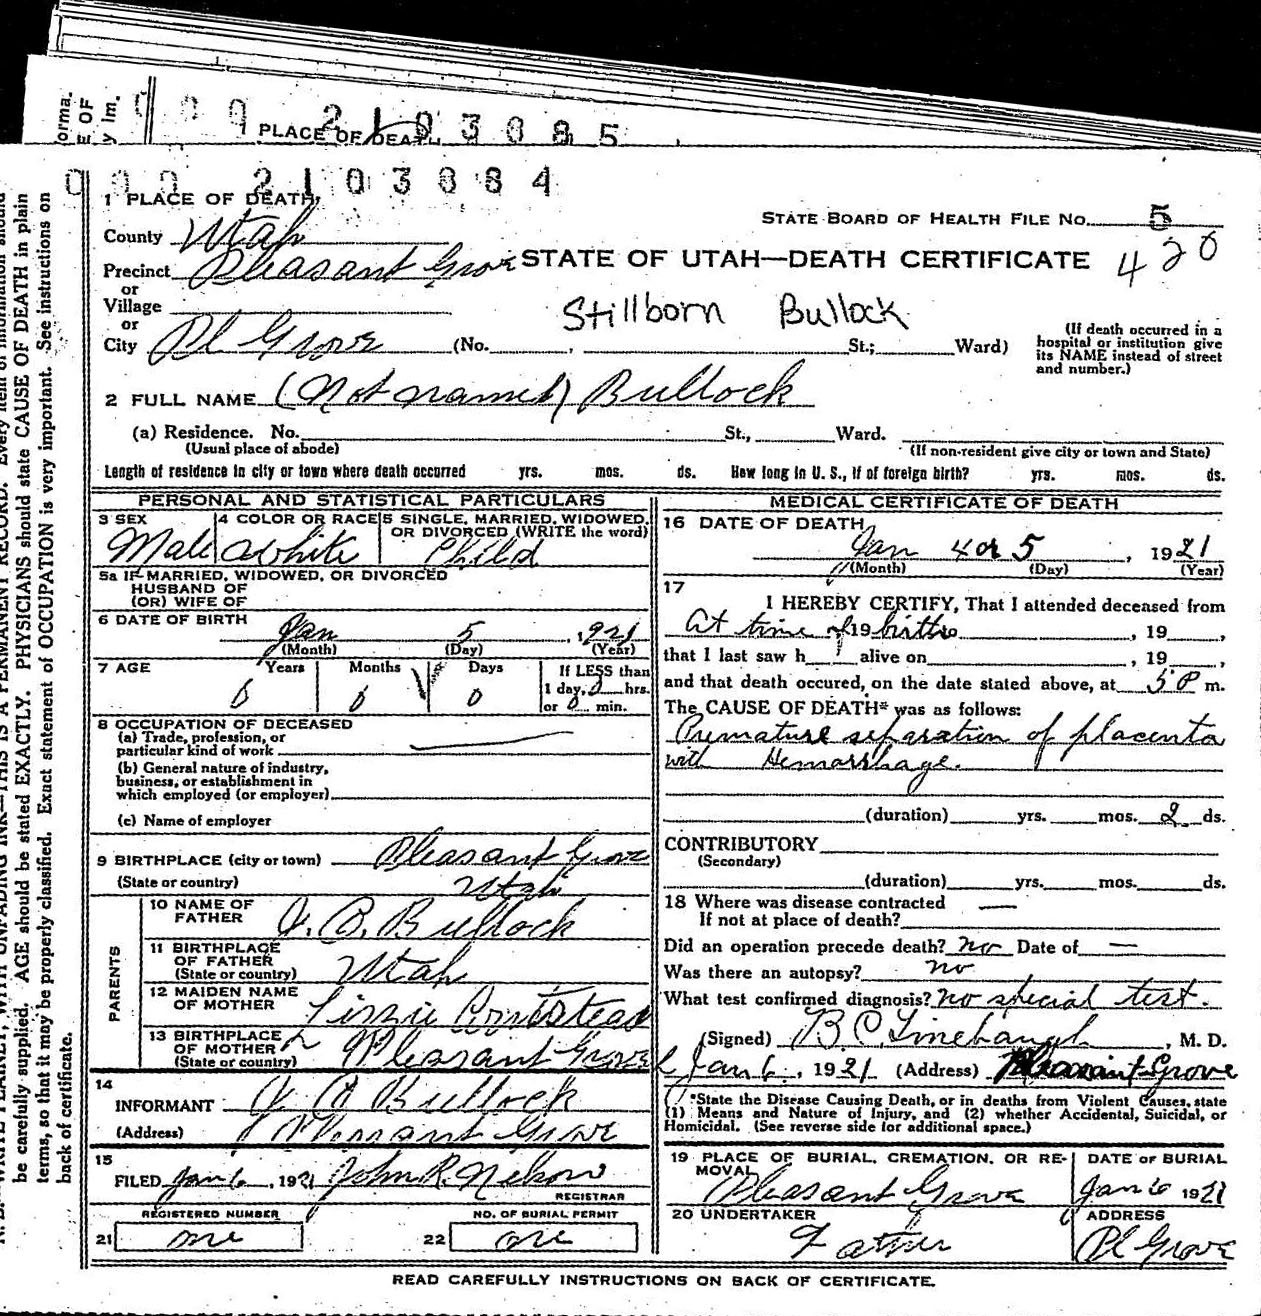 000 2103085
PLACE OF DEATH
000 2103084
1 PLACE OF DEATH,
STATE BOARD OF HEALTH FILE NO. 5
County Utah
420
Precinct Pleasant Grove STATE OF UTAH—DEATH CERTIFICATE
or
Village
Stillborn Bullock
or
City Pl Grove (No. , St.; Ward)
(If death occurred in a
hospital or institution give
its NAME instead of street
and number.)
2 FULL NAME (Not named) Bullock
(a) Residence. No. St., Ward.
(Usual place of abode) (If non-resident give city or town and State)
Length of residence in city or town where death occurred yrs. mos. ds. How long in U. S., if of foreign birth? yrs. mos. ds.
PERSONAL AND STATISTICAL PARTICULARS
3 SEX 4 COLOR OR RACE 5 SINGLE, MARRIED, WIDOWED,
OR DIVORCED (WRITE the word)
Male White Child
5a IF MARRIED, WIDOWED, OR DIVORCED
HUSBAND OF
(OR) WIFE OF
6 DATE OF BIRTH
Jan 5, 1921
(Month) (Day) (Year)
7 AGE Years Months Days If LESS than
1 day, 0 hrs.
0 0 0 or 0 min.
8 OCCUPATION OF DECEASED
(a) Trade, profession, or
particular kind of work
(b) General nature of industry,
business, or establishment in
which employed (or employer)
(c) Name of employer
9 BIRTHPLACE (city or town) Pleasant Grove
(State or country) Utah
PARENTS
10 NAME OF
FATHER Bullock
11 BIRTHPLACE
OF FATHER
(State or country) Utah
12 MAIDEN NAME
OF MOTHER Lizzie
13 BIRTHPLACE
OF MOTHER
(State or country) Pleasant Grove
14
INFORMANT Bullock
(Address) Pleasant Grove
15
FILED Jan 6, 1921 John R. Nelson
REGISTRAR
REGISTERED NUMBER NO. OF BURIAL PERMIT
21 one 22 one
MEDICAL CERTIFICATE OF DEATH
16 DATE OF DEATH
Jan 4 or 5, 1921
(Month) (Day) (Year)
17
I HEREBY CERTIFY, That I attended deceased from
At time of 19 birth, 19 ,
that I last saw h alive on , 19 ,
and that death occured, on the date stated above, at 5 P m.
The CAUSE OF DEATH* was as follows:
Premature separation of placenta
with Hemorrhage.
(duration) yrs. mos. 2 ds.
CONTRIBUTORY
(Secondary)
(duration) yrs. mos. ds.
18 Where was disease contracted —
If not at place of death?
Did an operation precede death? no Date of —
Was there an autopsy? no
What test confirmed diagnosis? no special test.
(Signed) B. C. Linebaugh, M. D.
Jan 6, 1921 (Address) Pleasant Grove
*State the Disease Causing Death, or in deaths from Violent Causes, state
(1) Means and Nature of Injury, and (2) whether Accidental, Suicidal, or
Homicidal. (See reverse side for additional space.)
19 PLACE OF BURIAL, CREMATION, OR RE-
MOVAL
Pleasant Grove
DATE OF BURIAL
Jan 6 1921
20 UNDERTAKER
Father
ADDRESS
Pl Grove
READ CAREFULLY INSTRUCTIONS ON BACK OF CERTIFICATE.
be carefully supplied. AGE should be stated EXACTLY. PHYSICIANS should state CAUSE OF DEATH in plain
terms, so that it may be properly classified. Exact statement of OCCUPATION is very important. See instructions on
back of certificate.